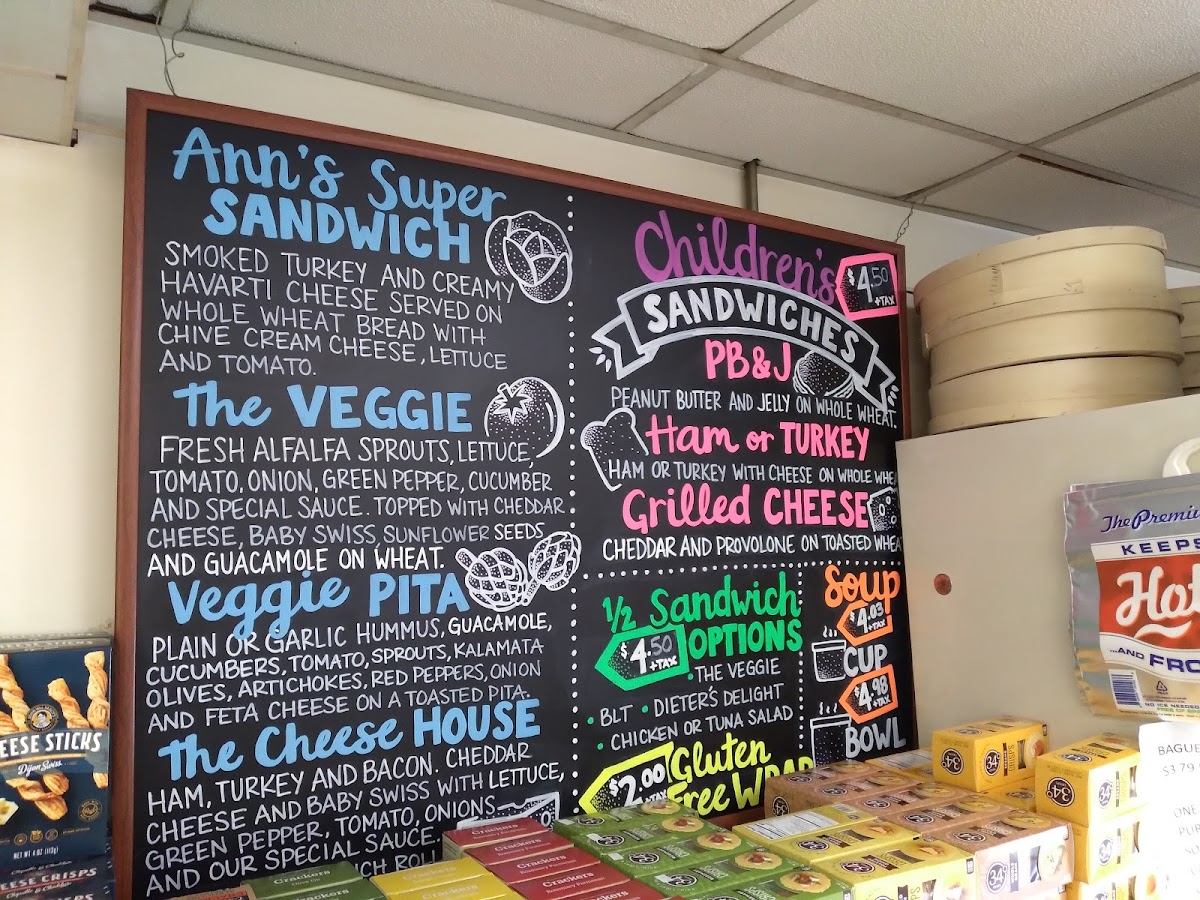 Ann's Super
SANDWICH
SMOKED TURKEY AND CREAMY
HAVARTI CHEESE SERVED ON
WHOLE WHEAT BREAD WITH
CHIVE CREAM CHEESE, LETTUCE
AND TOMATO.
the VEGGIE
FRESH ALFALFA SPROUTS, LETTUCE,
TOMATO, ONION, GREEN PEPPER, CUCUMBER
AND SPECIAL SAUCE. TOPPED WITH CHEDDAR
CHEESE, BABY SWISS, SUNFLOWER SEEDS
AND GUACAMOLE ON WHEAT.
Veggie PITA
PLAIN OR GARLIC HUMMUS, GUACAMOLE,
CUCUMBERS, TOMATO, SPROUTS, KALAMATA
OLIVES, ARTICHOKES, RED PEPPERS, ONION
AND FETA CHEESE ON A TOASTED PITA.
the Cheese HOUSE
HAM, TURKEY AND BACON. CHEDDAR
CHEESE AND BABY SWISS WITH LETTUCE,
GREEN PEPPER, TOMATO, ONIONS
AND OUR SPECIAL SAUCE.
CH ROLL
Children's
$4.50
+TAX
SANDWICHES
PB&J
PEANUT BUTTER AND JELLY ON WHOLE WHEAT.
Ham or TURKEY
HAM OR TURKEY WITH CHEESE ON WHOLE WHE
Grilled CHEESE
CHEDDAR AND PROVOLONE ON TOASTED WHEA
1/2 Sandwich
OPTIONS
$4.50
+TAX
• THE VEGGIE
• BLT • DIETER'S DELIGHT
• CHICKEN OR TUNA SALAD
$2.00
+TAX
Gluten
Free WRAP
Soup
$4.03
+TAX
CUP
$4.98
+TAX
BOWL
EESE STICKS
Dijon Swiss
NET WT 4 OZ (113g)
EESE CRISPS
Crackers
Crackers
Crackers
Crackers
Crackers
The Premiu
KEEPS
Hot
...AND FRO
NO ICE NEEDED
BAGUE
$3.79
ONE